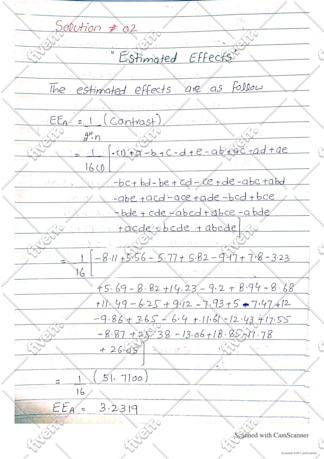 Solution # 02
"Estimated Effects"
The estimated effects are as follow
EEA = 1 (Contrast)
= 1 [-(1)+a-b+c-d+e-ab+ac-ad+ae
16(1)
-bc+bd-be+cd-ce+de-abc+abd
-abe+acd-ace+ade-bcd+bce
-bde+cde-abcd+abce-abde
+acde+bcde+abcde]
= 1 [-8.11+5.56-5.77+5.82-9.17+7.8-3.23
16
+5.69-8.82+14.23-9.2+8.94-8.68
+11.49-6.25+9.12-7.93+5-7.47+12
-9.86+3.65-6.4+11.61-12.43+17.55
-13.06+18.85-11.78
+26.05]
= 1 (51.7100)
16
EEA = 3.2319
Scanned with CamScanner